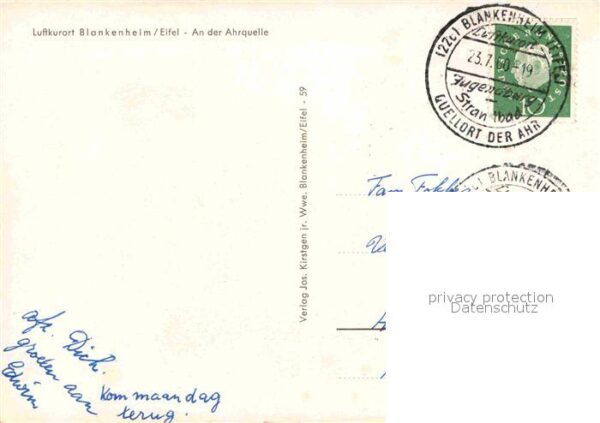 Luftkurort Blankenheim/Eifel - An der Ahrquelle
(22c) BLANKENHEIM (EIFEL)
Luftkurort
23.7.60-19
Jugendburg
Strandbad
QUELLORT DER AHR
10
Verlag Jos. Kirstgen jr. Wwe. Blankenheim/Eifel - 59
BLANKENHE
Fam
privacy protection
Datenschutz
afz. Dich.
groeten aan
Edwin
Kom maandag
terug.